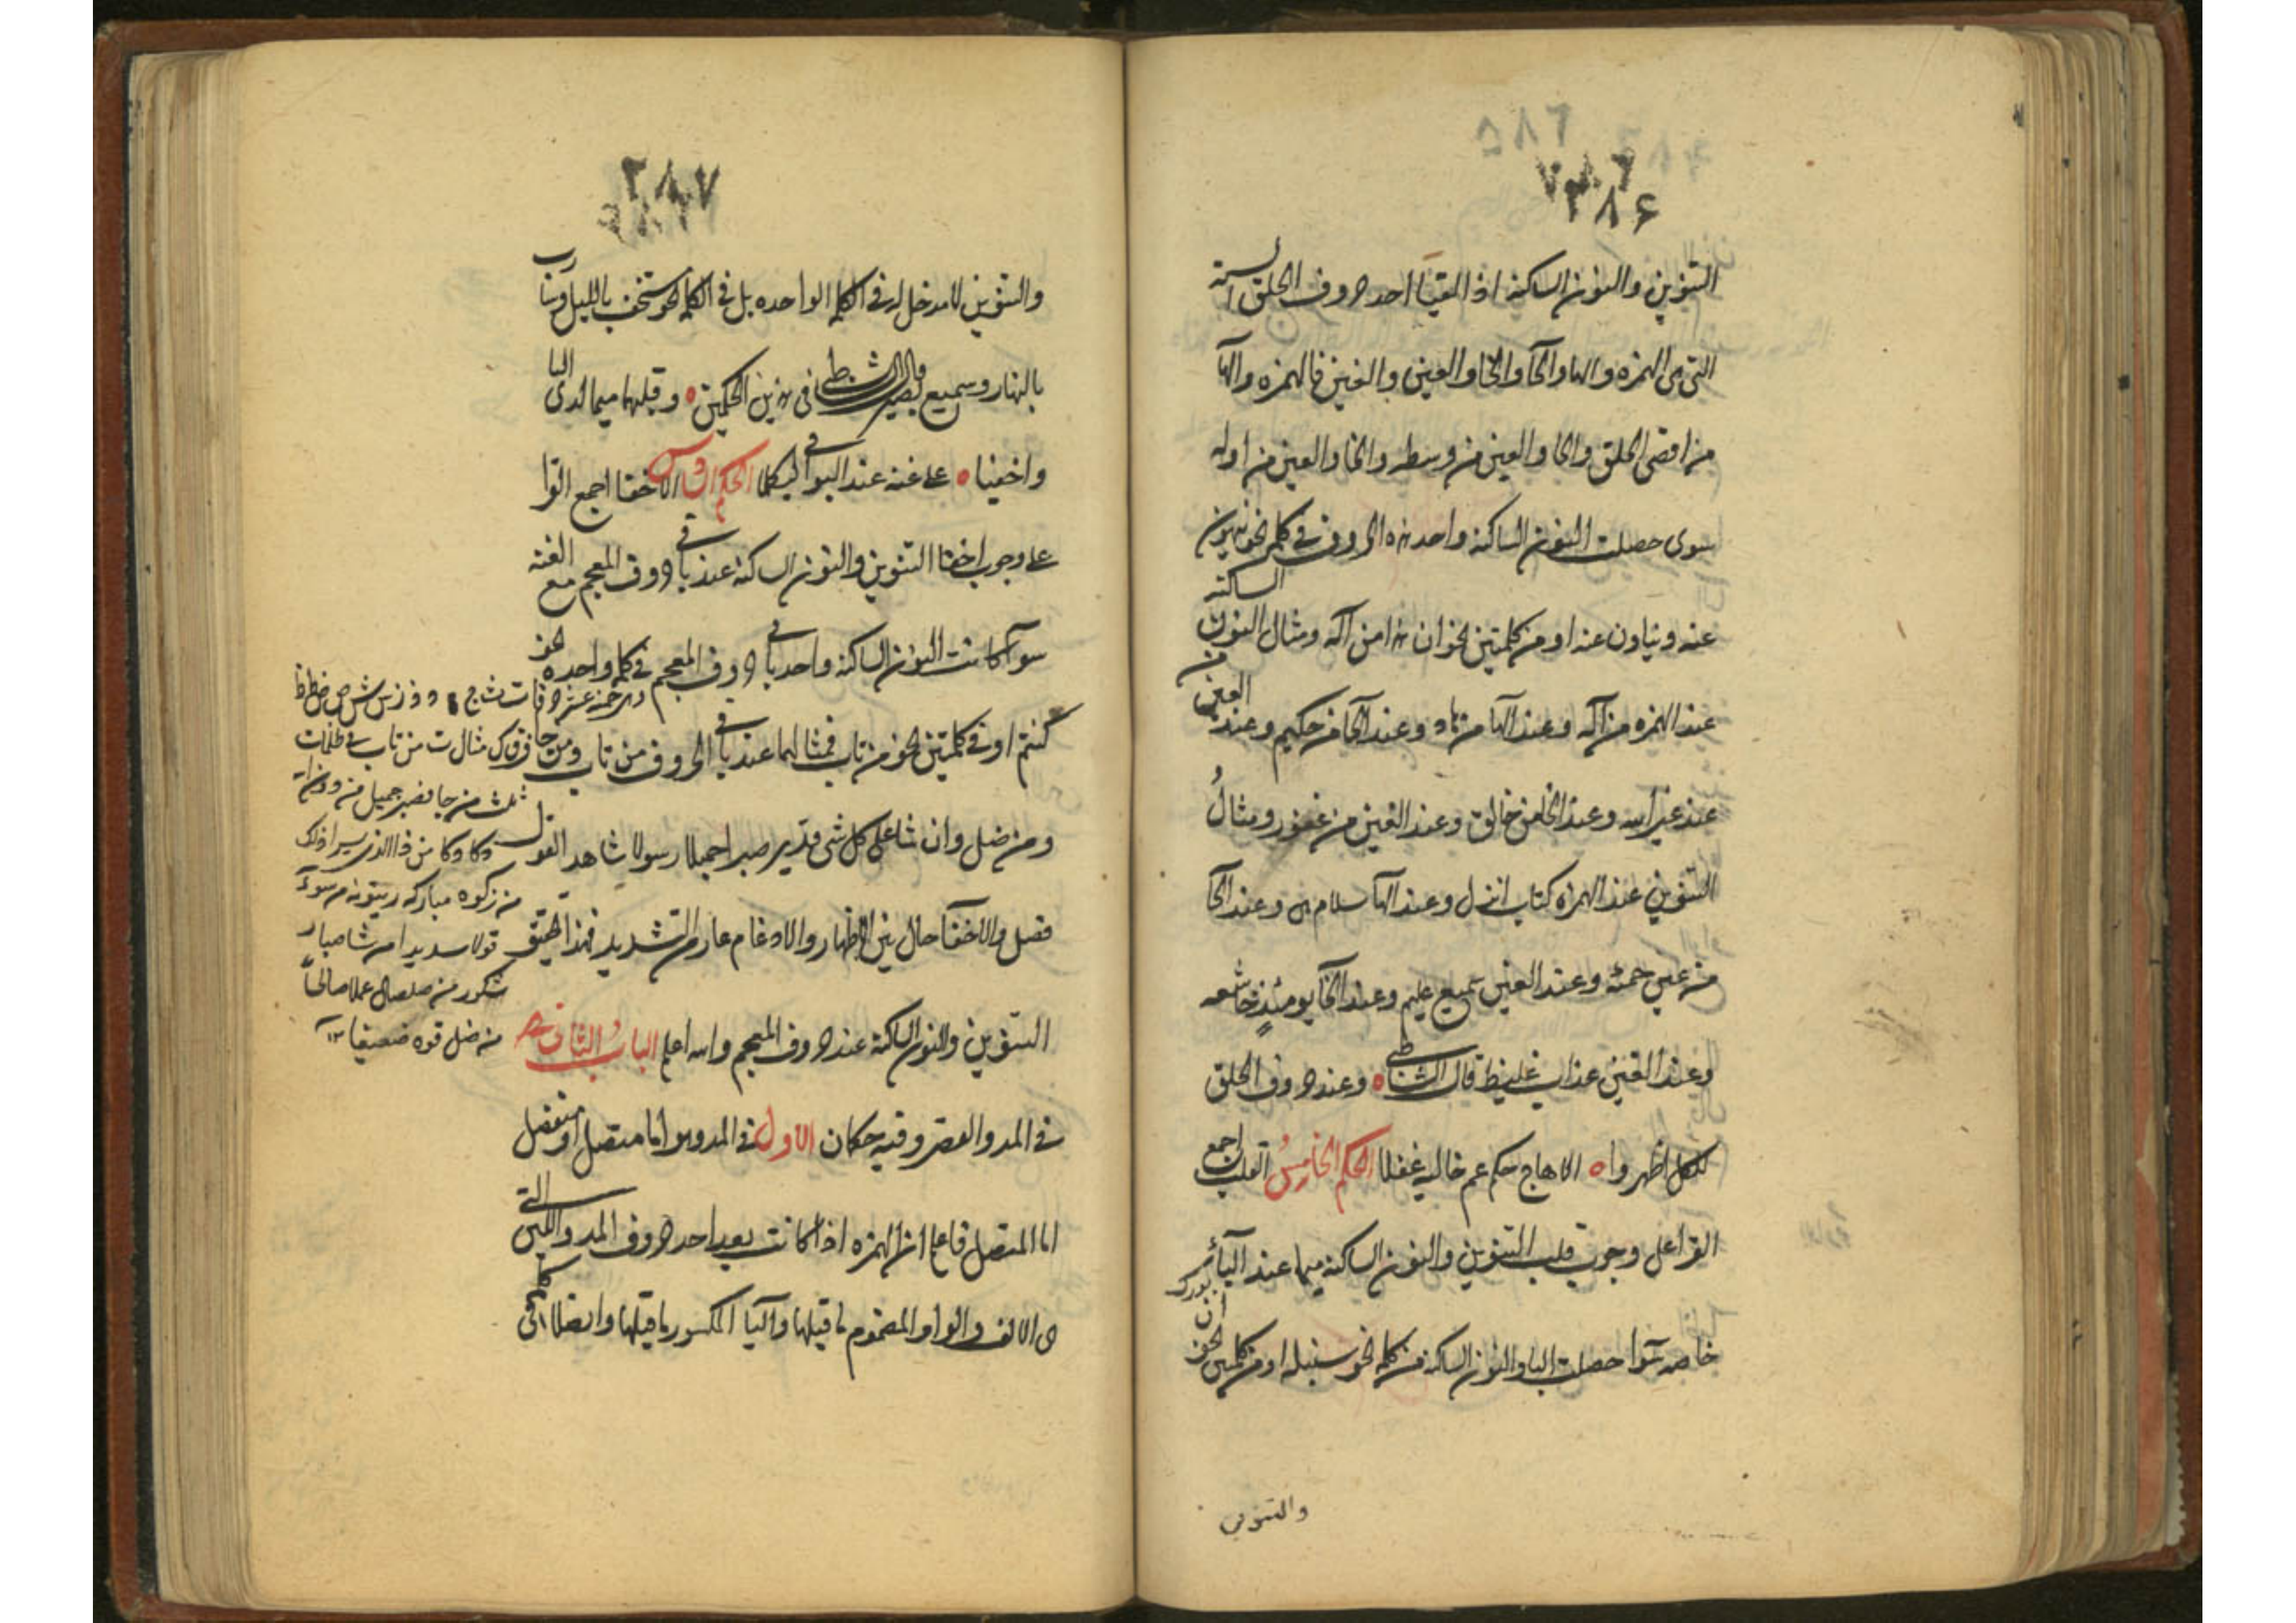 ٢٨٦
التنوين والنون الساكنة اذا لقيا احد حروف الحلق الستة
التي هي الهمزه والهاء والحآ والخا والعين والغين فالهمزه والهآ
من اقصى الحلق والحا والعين من وسطه والخا والغين من اوله
سوى حصلت النون الساكنة واحد هذه الحروف في كلمه نحو ينهون
عنه ويناون عنه او من كلمتين نحو ان هذا من آله ومثال النون الساكنة
عند الهمزه من آله وعند الهآ من هاد وعند الحا من حكيم وعند العين من
عند غير الله وعند الخا من خالق وعند الغين من غفور ومثالُ
التنوين عند الهمزه كتاب انزل وعند الهآ سلام هي وعند الحآ
من عين حمئه وعند العين سميع عليم وعند الخآ يومئذٍ خاشعه
وعند الغين عذاب غليظ قال الشاطبي ه وعند حروف الحلق
للكل اظهروا ه الا هاج حكم عم خاليه غفلا الحكم الخامسُ القلب اجمع
القرا على وجوب قلب التنوين والنون الساكنة ميما عند البآء
خاصه سوا حصلت البا والنون الساكنة من كلمه نحو سنبله او من كلمتين نحو ان بورك
والتنوين
٢٨٧
والتنوين لا مدخل له في الكلمه الواحده بل في الكلمه نحو مستخف بالليل وسارب
بالنهار وسميع بصير قال الشاطبي في هذين الحكمين ه وقلبهما ميما لدى البا
واخفيا ه على غنه عند البواقي ليكملا الحكم السادس الاخفا اجمع القرا
على وجوب اخفا التنوين والنون الساكنة عند باقي حروف المعجم مع الغنه
سوآ كانت النون الساكنة واحد باقي حروف المعجم في كلمه واحده نحو
كنتم او في كلمتين نحو من تاب فمثالهما عند باقي الحروف من تاب ومن جا
ومن ضل وان شا على كل شى قدير صبرا جميلا رسولا شاهدا القول
فصل والاخفآ حال بين الاظهار والادغام عار من التشديد فهذا تحقيق
التنوين والنون الساكنة عند حروف المعجم والله اعلم البابُ الثاني
في المد والقصر وفيه حكمان الاول في المد وهو اما متصل او منفصل
اما المتصل فاعلم ان الهمزه اذا كانت بعد احد حروف المد واللين التي
هي الالف والواو المضموم ما قبلها واليآ المكسور ما قبلها وايضا
وهي خمسة عشر حرفا ت ث ج د ذ ز س ش ص ض ط ظ
ف ق ك مثال ت من تاب في ظلمات
ثلث من جا فصبر جميل من
دكا دكا من ذا الذى
من زكوه مباركه زيتونه من سوءٓ
قولا سديدا من شا صبار
شكور من صلصال عملا صالحاً
من ضل قوه ضعفا ١٢